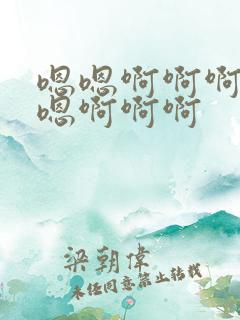 嗯嗯啊啊啊
嗯啊啊啊
梁朝偉
未经同意禁止转载